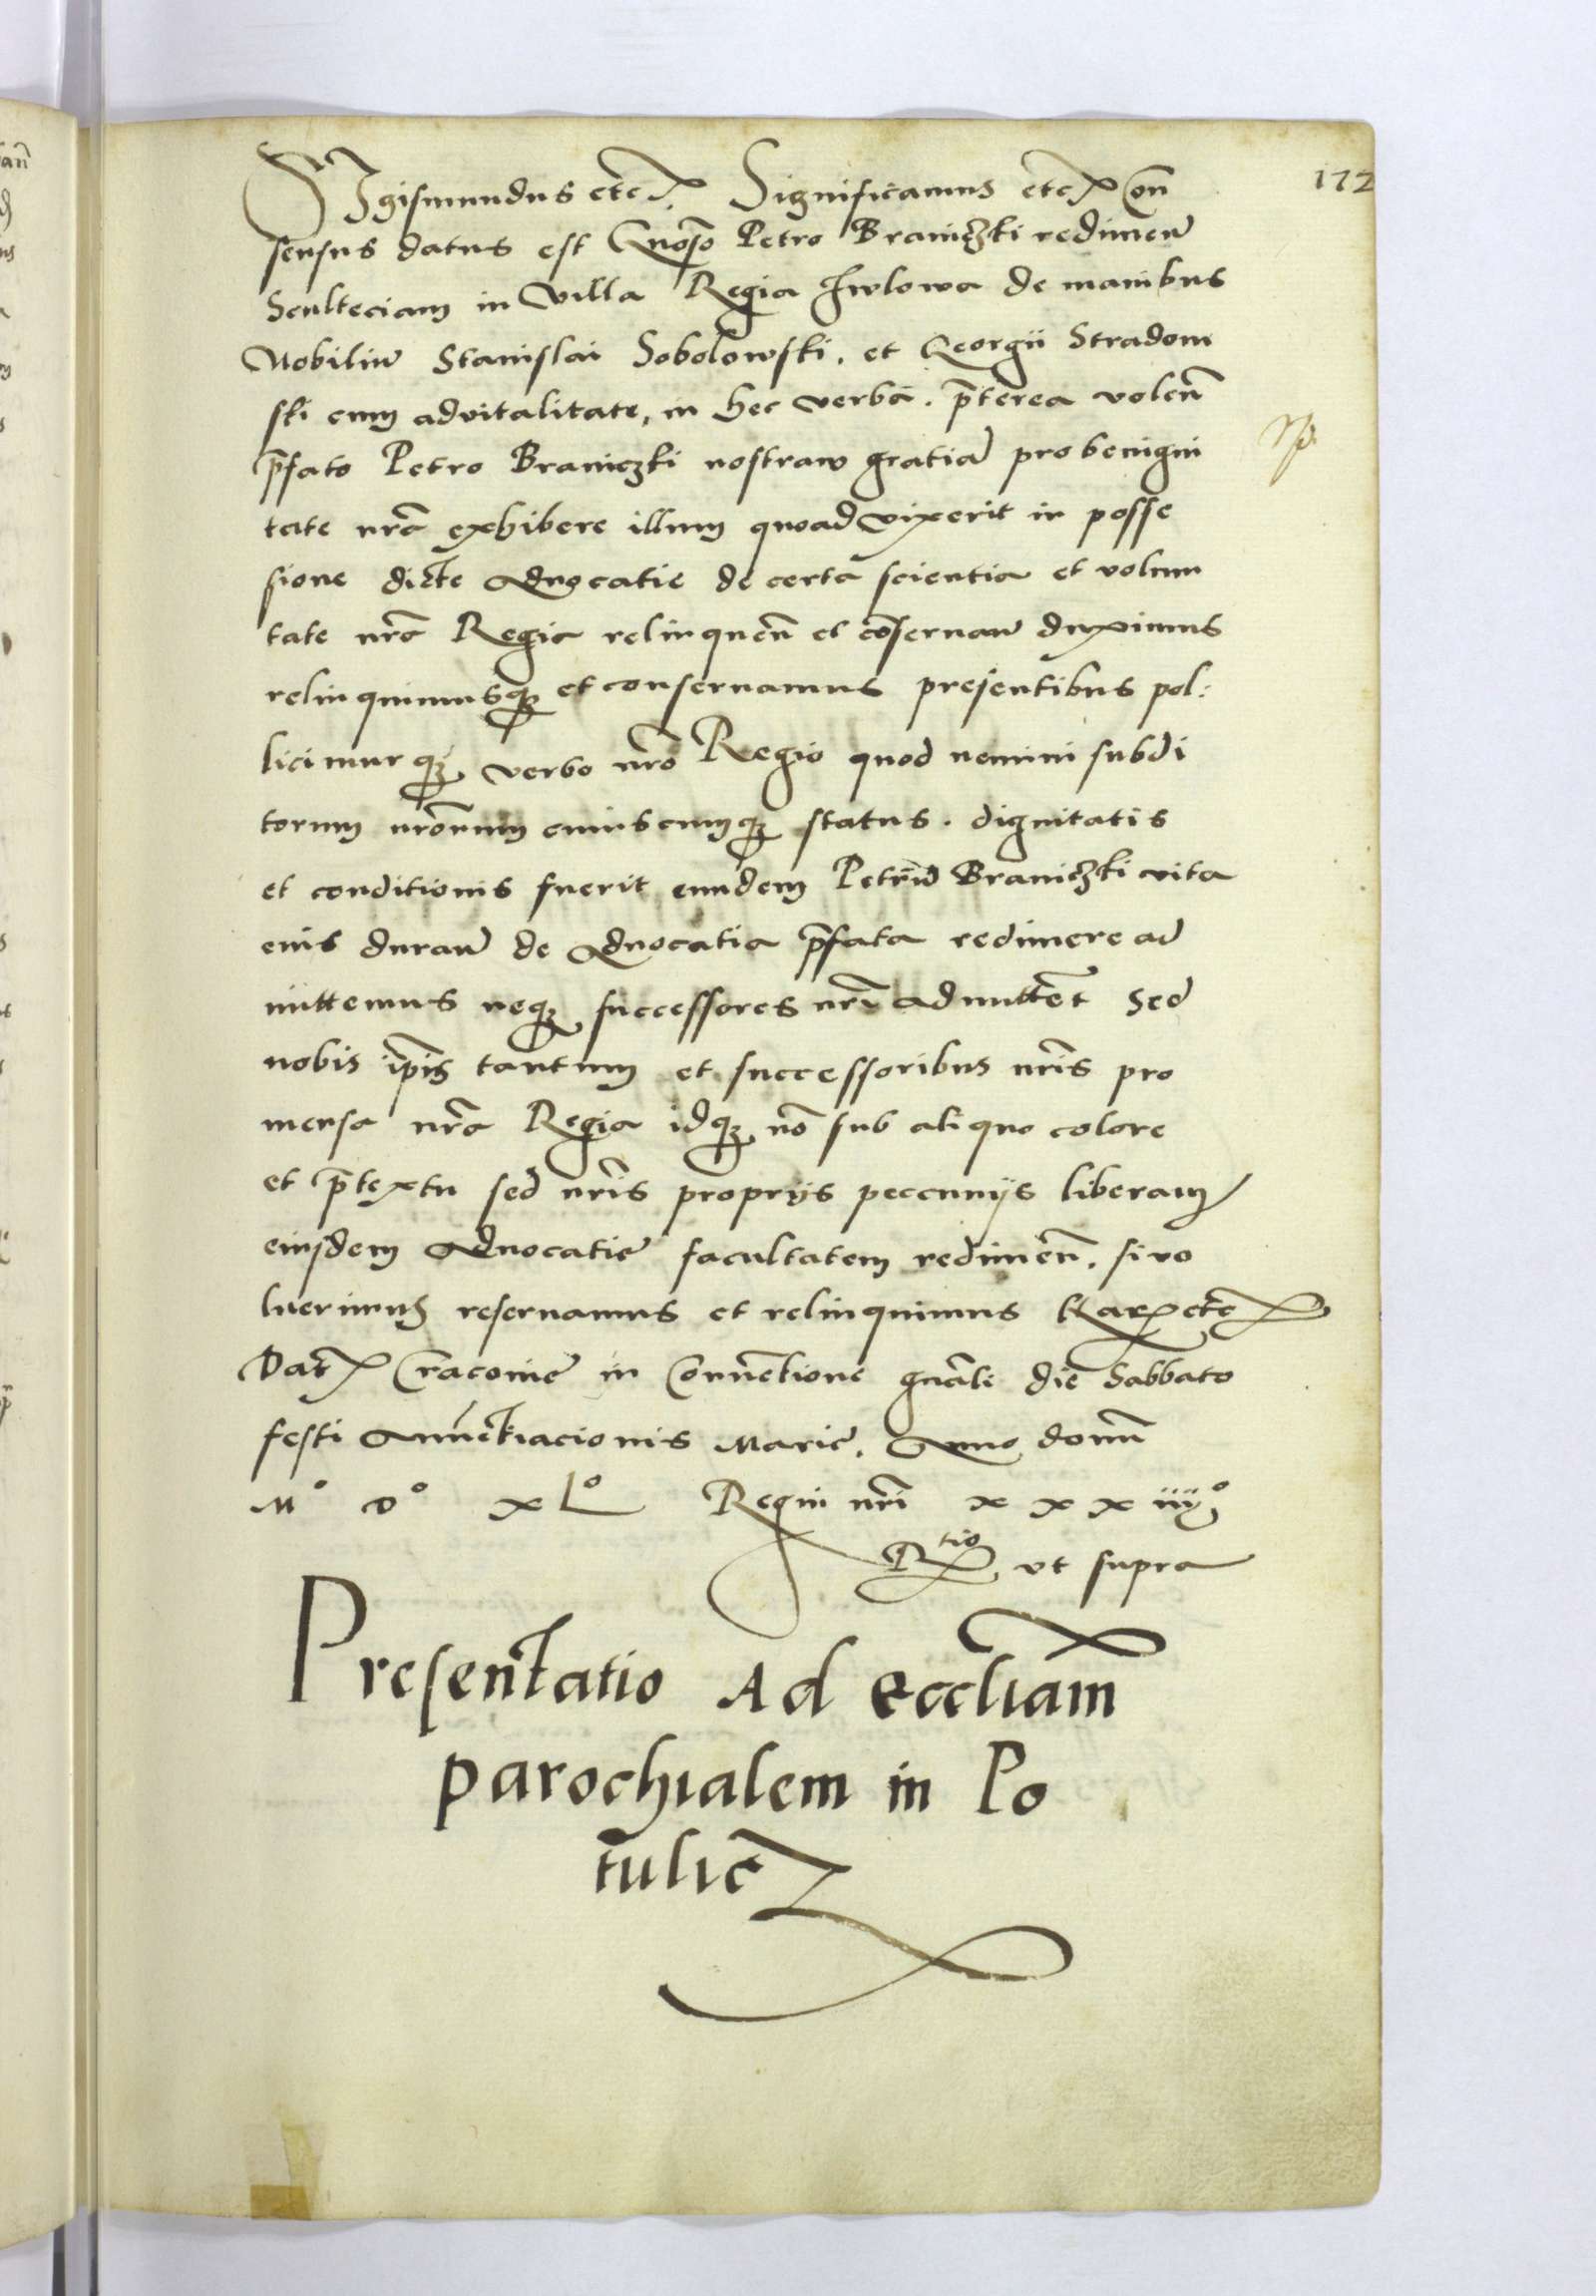 172
Sigismundus etc. Significamus etc. Con
sensus datus est Gnoso Petro Braniczki redimen
Sculteciam in villa Regia Iwlowa de manibus
Nobiliu Stanislai Sobolowski. et Georgii Stradom
ski cum advitalitate, in hec verba. preterea volen
pfato Petro Braniczki nostram gratia pro benigni
tate nra exhibere illum quoad vixerit in posse
sione dicte Advocatie de certa scientia et volun
tate nra Regia relinquen et consernan duximus
relinquimusq et consernamus presentibus pol:
licimurq verbo nro Regio quod nemini subdi
torum nrorum cuiuscumq status. dignitatis
et conditionis fuerit eundem Petrum Braniczki vita
eius duran de Advocatia pfata redimere ad
mittemus neq successores nri admittent Sed
nobis ipis tantum et successoribus nris pro
mensa nra Regia idq no sub aliquo colore
et ptextu sed nris proprijs peccunijs liberam
eiusdem Advocatie facultatem redimen. si vo
luerimus reservamus et relinquimus Har etc
Dat Cracovie in Conventione gnali die Sabbato
festi Annuntiacionis Marie. Anno domn
Mº Dº XLº Regni nri xxxiiijº
Rtio ut supra
Presentatio Ad Eccliam
parochialem in Po
tulicz